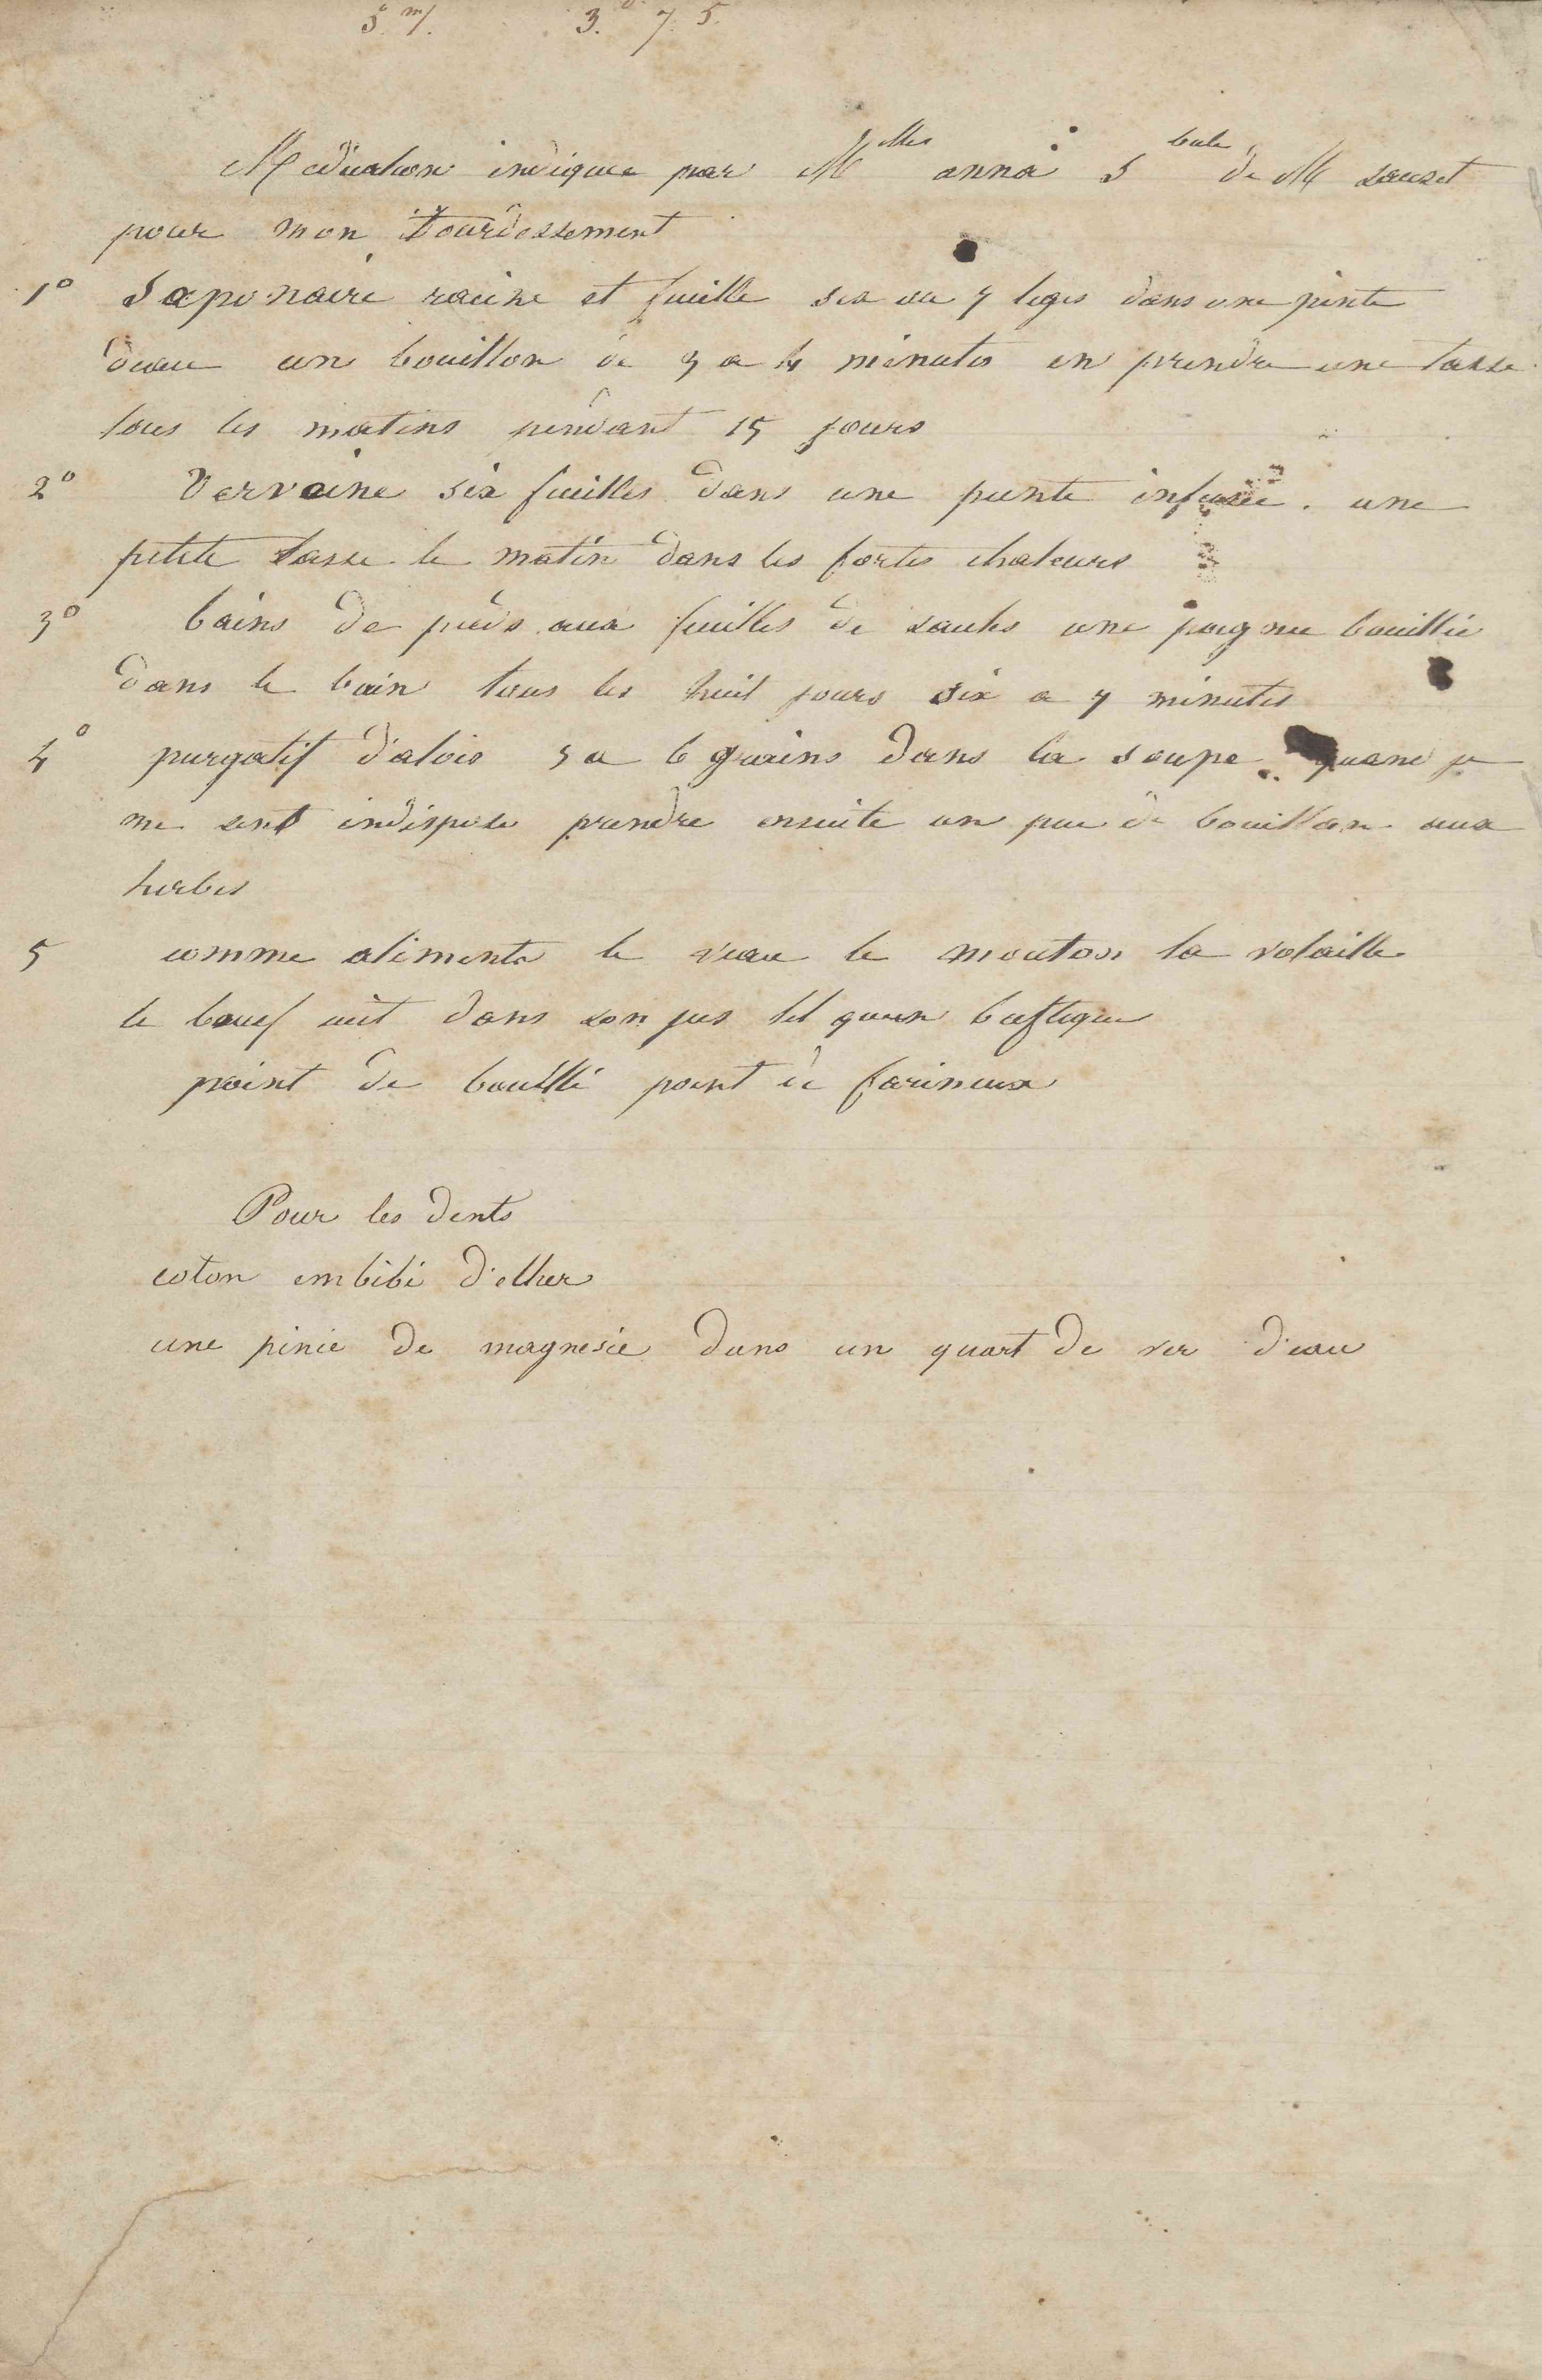 5. m/. 3. 7. 5.
Medication indiquee par Mlles anna S de M sauzet
pour mon Etourdissement
1° Saponaire racine et feuille six ou 7 tiges dans une pinte
deau un bouillon de 3 a 4 minutes en prendre une tasse
tous les matins pendant 15 jours
2° Vervaine six feuilles dans une peinte infusée. une
petite tasse le matin dans les fortes chaleurs
3° bains de pieds aux feuilles de saules une poignee bouillie
dans le bain tous les huit jours six a 7 minutes
4° purgatif d'alois 5 a 6 grains dans la soupe quand je
me sent indispose prendre ensuite un peu de bouillon aux
herbes
5 comme aliments le veau le mouton la volaille
le boeuf cuit dans son jus tel quun bifteque
point de bouilli point de farineux
Pour les dents
coton imbibé d'ether
une pincé de magnesie dans un quart de ver d'eau